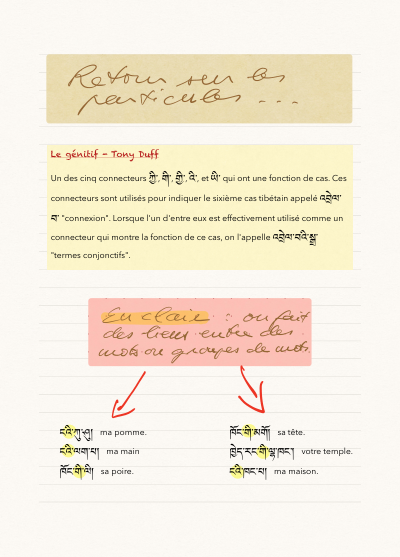 Retour sur les
particules ...
Le génitif – Tony Duff
Un des cinq connecteurs ཀྱི་, གི་, གྱི་, འི་, et ཡི་ qui ont une fonction de cas. Ces
connecteurs sont utilisés pour indiquer le sixième cas tibétain appelé འབྲེལ་
བ་ "connexion". Lorsque l'un d'entre eux est effectivement utilisé comme un
connecteur qui montre la fonction de ce cas, on l'appelle འབྲེལ་བའི་སྒྲ་
"termes conjonctifs".
En claire : on fait
des liens entre des
mots ou groupes de mots.
ངའི་ཀུ་ཤུ། ma pomme.
ངའི་ལག་པ། ma main
ཁོང་གི་ལི། sa poire.
ཁོང་གི་མགོ། sa tête.
ཁྱེད་རང་གི་ལྷ་ཁང་། votre temple.
ངའི་ཁང་པ། ma maison.